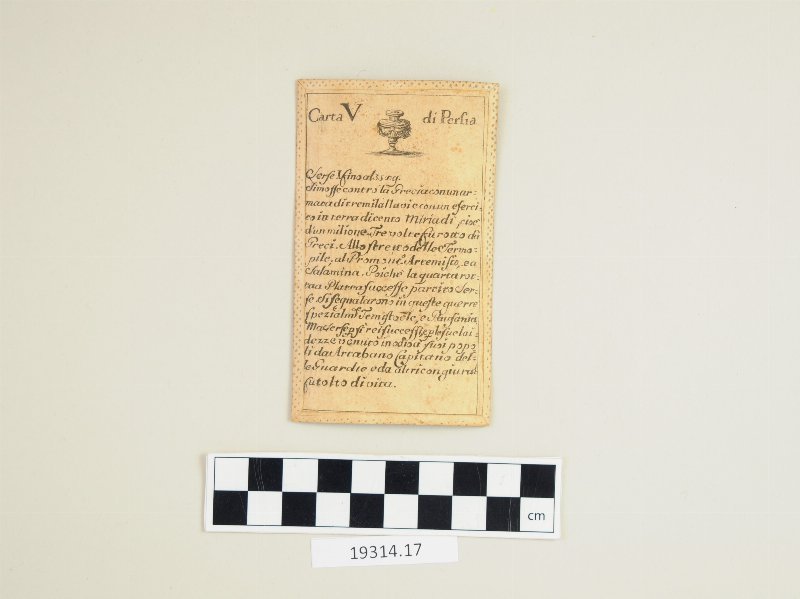 Carta V di Persia
Serse I fino al 3519.
Simosse contro la Grecia con un ar-
mata di tremila Navi e con un eserci-
to in terra di cento Miriadi cioè
d'un milione. Tre volte fu rotto da
Greci. Allo stretto delle Termo-
pile, al Promont. Artemisio, e a
Salamina. Poiché la quarta rot-
ta a Platea successe partito Ser-
se. Si segnalarono in queste guerre
spezialm. Temistocle, e Pausania
Ma Serse p i rei successi, e p le sue lai-
dezze venuto in odio a' suoi popo-
li da Artabano Capitano del-
le Guardie e da altri congiurati
fu tolto di vita.
cm
19314.17